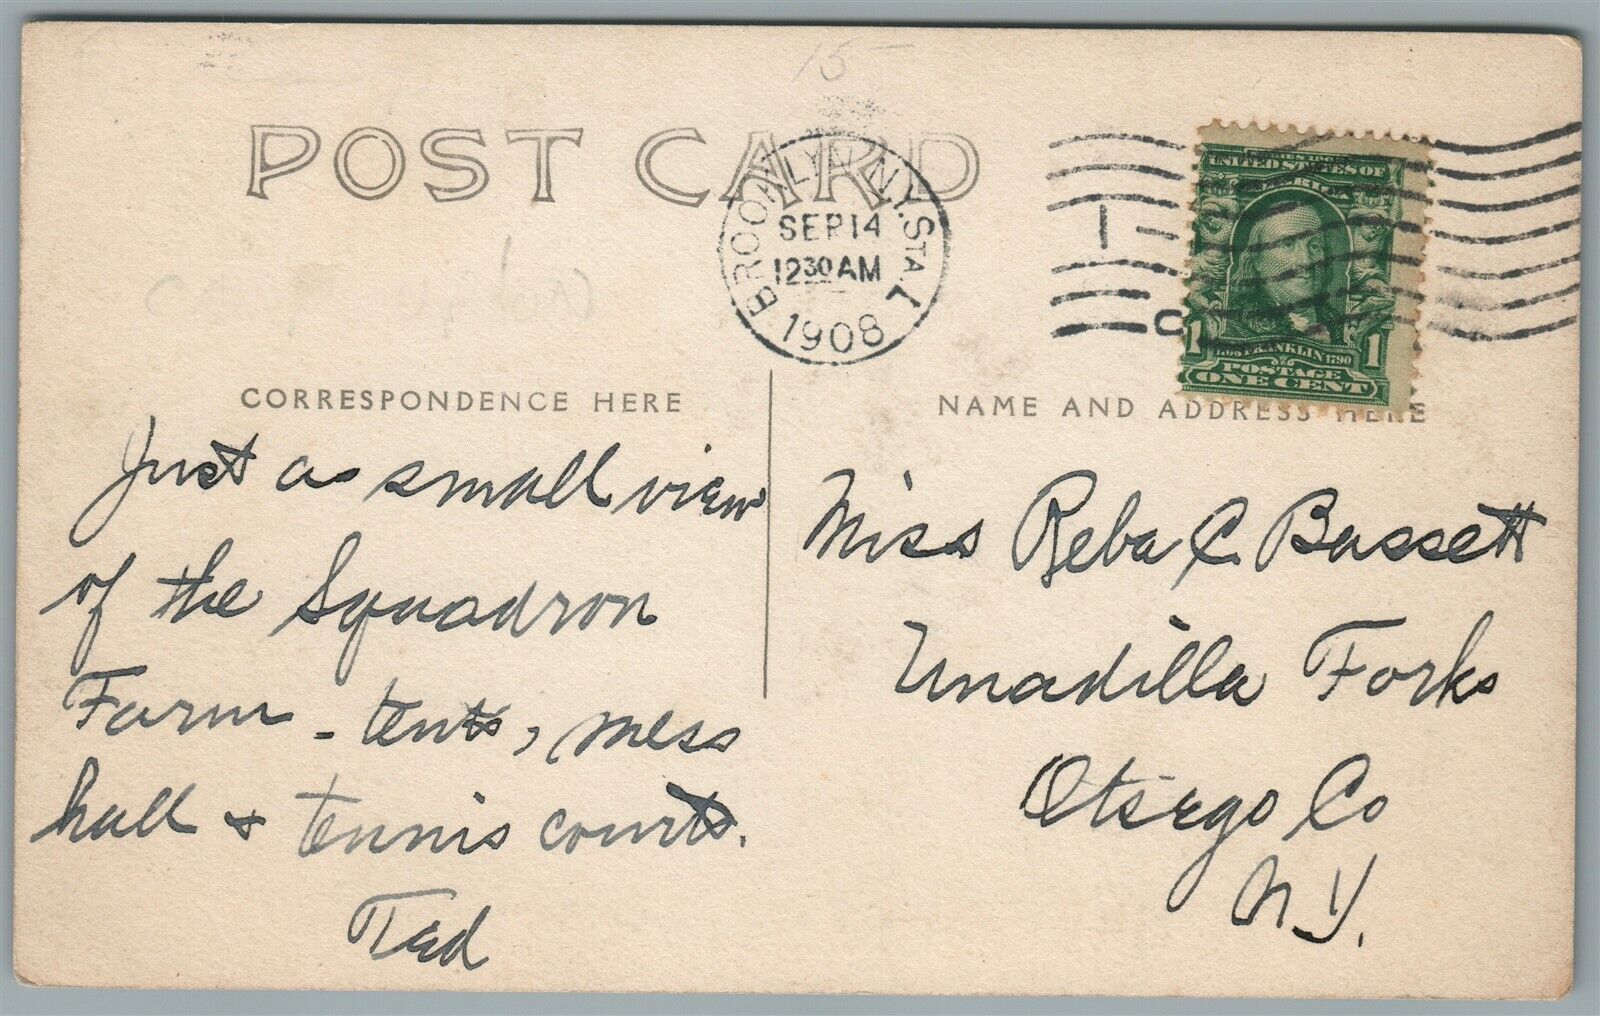 15-
POST CARD
BROOKLYN, N.Y. STA. L
SEP 14
12 30 AM
1908
1
SERIES 1902
UNITED STATES OF
AMERICA
1 FRANKLIN 1790 1
POSTAGE
ONE CENT
CORRESPONDENCE HERE
Just a small view
of the Squadron
Farm - tents, mess
hall & tennis courts.
Ted
NAME AND ADDRESS HERE
Miss Reba C. Bassett
Unadilla Forks
Otsego Co
N.Y.